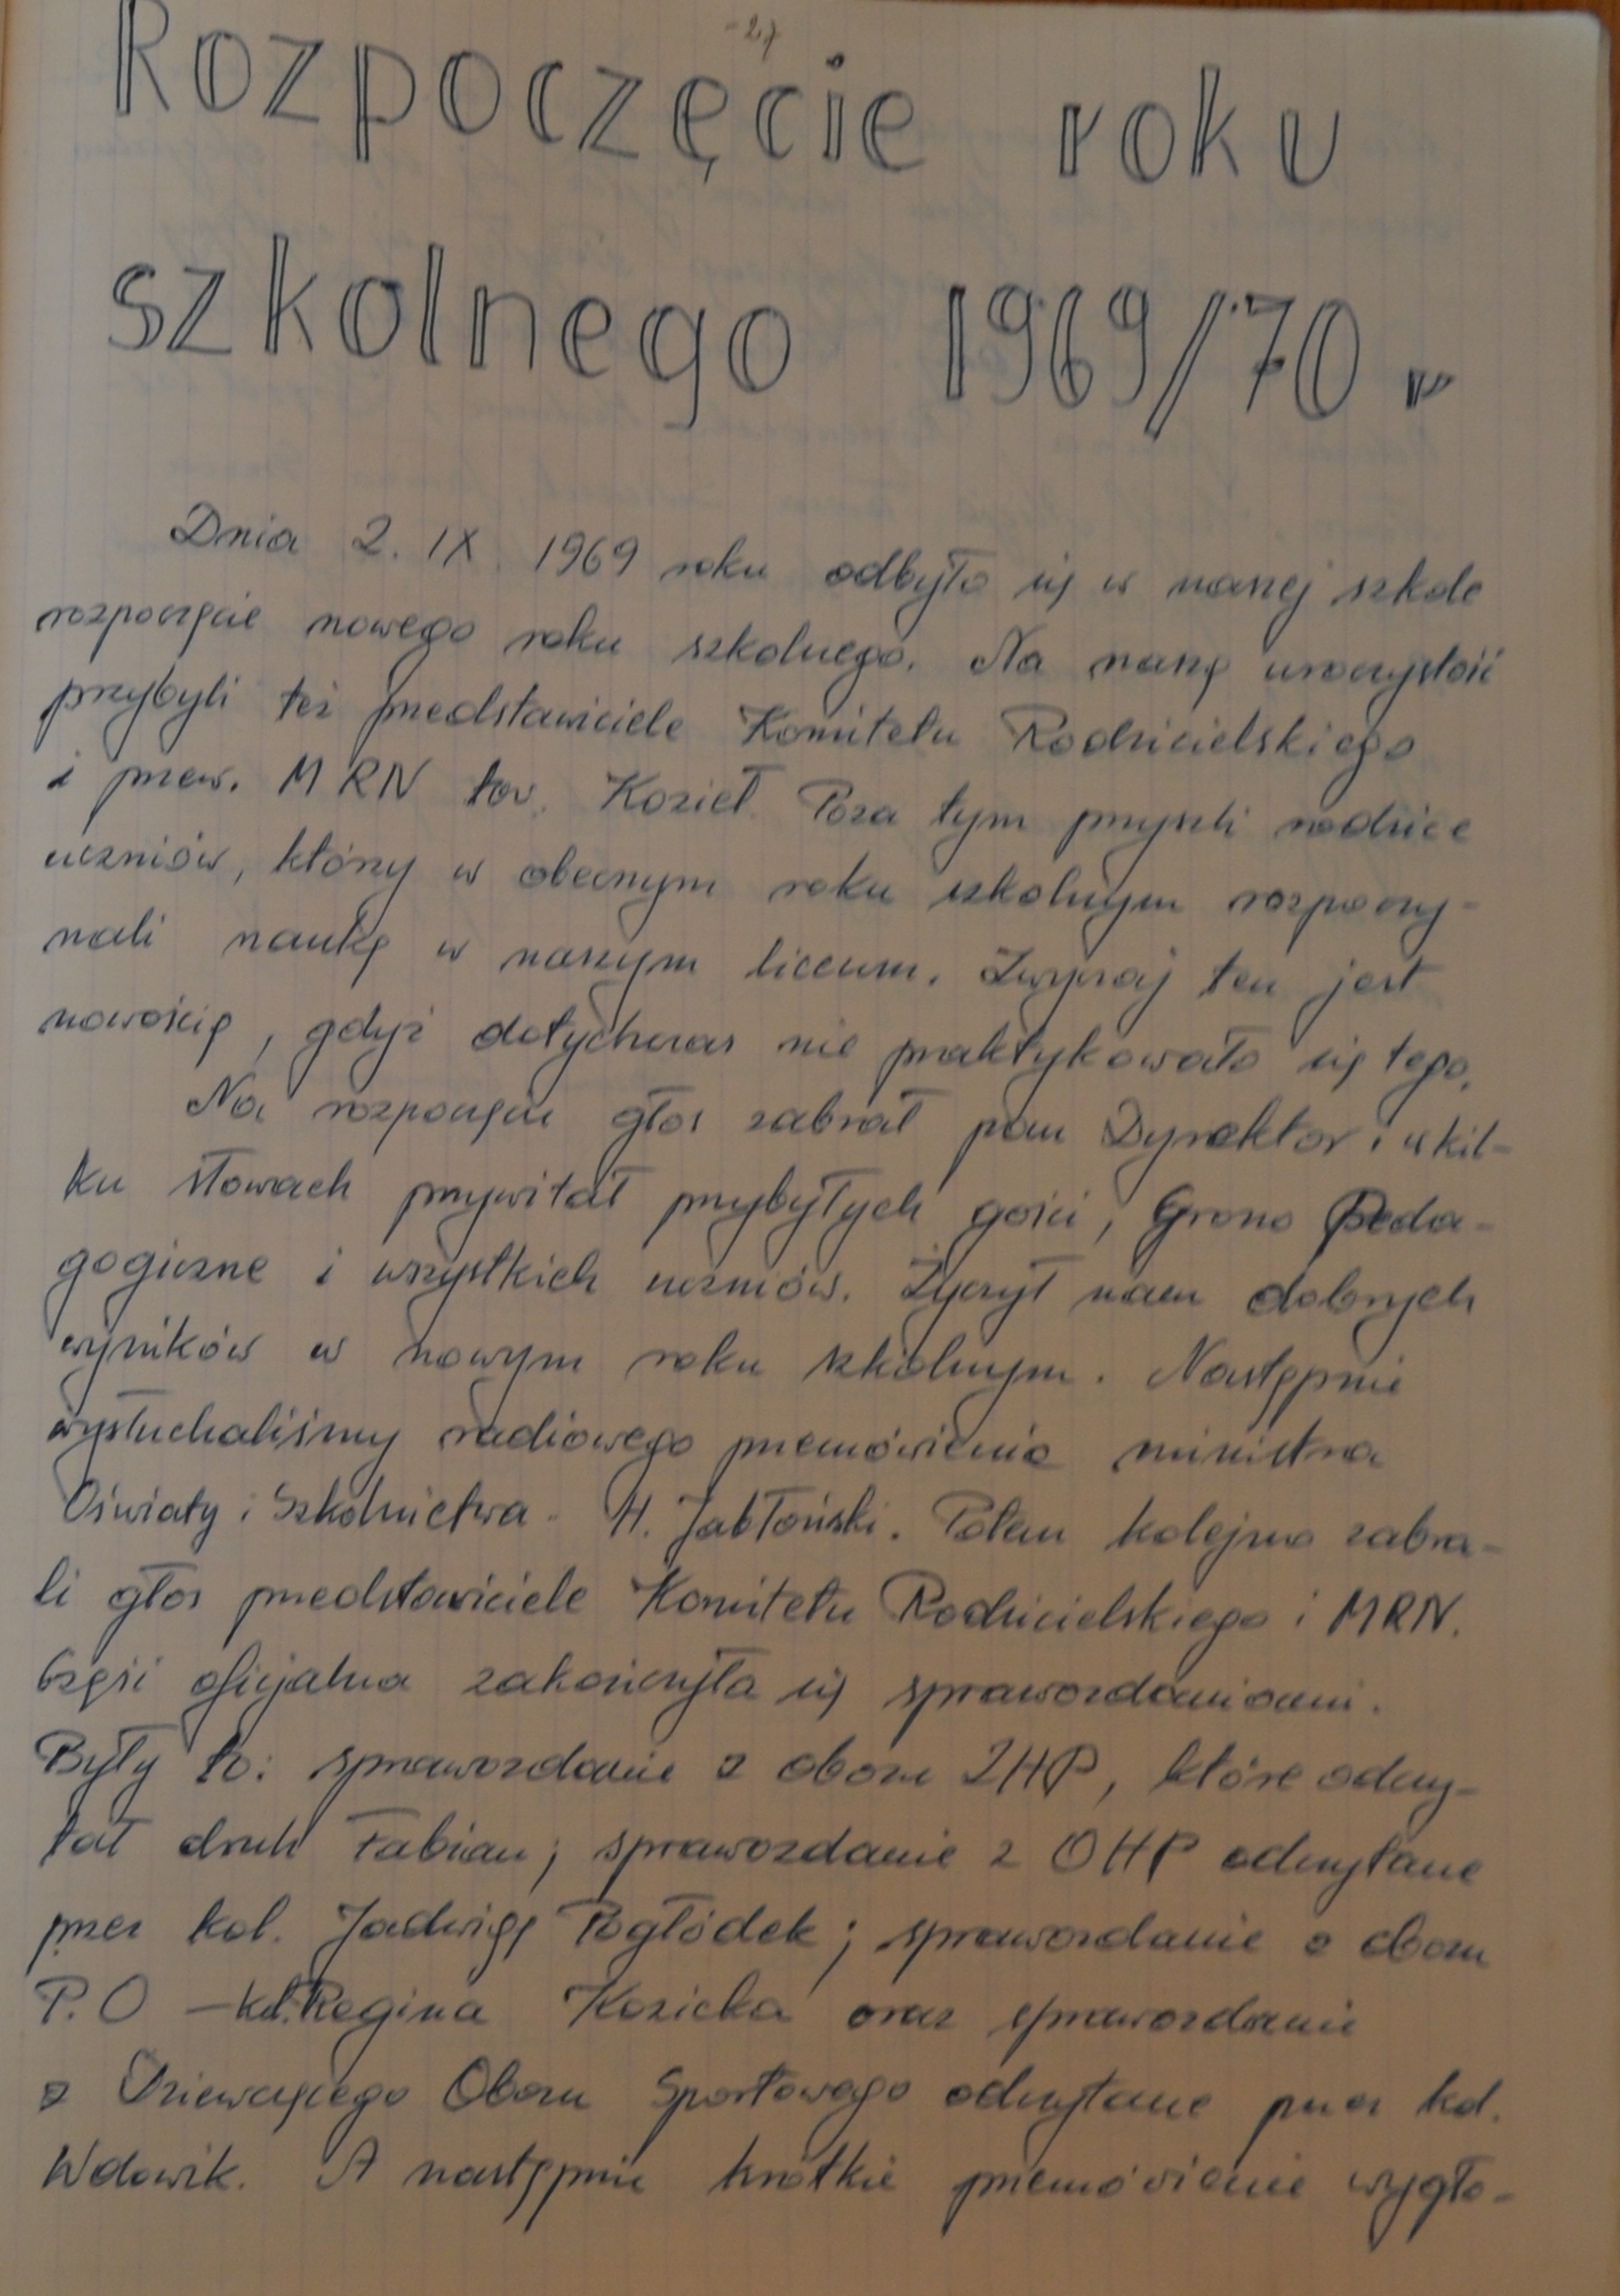 -27
Rozpoczęcie roku
szkolnego 1969/70 r
Dnia 2. IX. 1969 roku odbyło się w naszej szkole
rozpoczęcie nowego roku szkolnego. Na naszą uroczystość
przybyli też przedstawiciele Komitetu Rodzicielskiego
i przew. MRN tow. Kozieł. Poza tym przyszli rodzice
uczniów, którzy w obecnym roku szkolnym rozpoczy-
nali naukę w naszym liceum. Zwyczaj ten jest
nowością, gdyż dotychczas nie praktykowało się tego.
Na rozpoczęcie głos zabrał pan Dyrektor i w kil-
ku słowach przywitał przybyłych gości, Grono Peda-
gogiczne i wszystkich uczniów. Życzył nam dobrych
wyników w nowym roku szkolnym. Następnie
wysłuchaliśmy radiowego przemówienia ministra
Oświaty i Szkolnictwa - H. Jabłoński. Potem kolejno zabra-
li głos przedstawiciele Komitetu Rodzicielskiego i MRN.
Część oficjalna zakończyła się sprawozdaniami.
Były to: sprawozdanie z obozu ZHP, które odczy-
tał druh Fabian; sprawozdanie z OHP odczytane
przez kol. Jadwigę Pogłódek; sprawozdanie z obozu
P.O - kol. Regina Kozicka oraz sprawozdanie
z Dziewczęcego Obozu Sportowego odczytane przez kol.
Wdowik. A następnie krótkie przemówienie wygło-